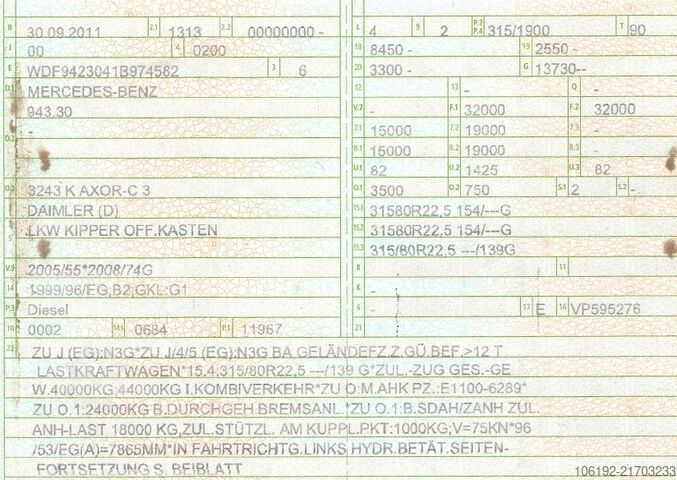 B 30.09.2011 2.1 1313 2.2 00000000 -
J 00 4 0200
E WDF9423041B974582 3 6
D.1 MERCEDES-BENZ
943.30
D.2 -
D.3 3243 K AXOR-C 3
DAIMLER (D)
LKW KIPPER OFF.KASTEN
5
V.9 2005/55*2008/74G
14 1999/96/EG;B2;GKL:G1
P.3 Diesel
10 0002 14.1 0684 P.1 11967
L 4 9 2 P.2 P.4 315/1900 T 90
18 8450 - 19 2550 -
20 3300 - G 13730--
12 - 13 - Q -
V.7 - F.1 32000 F.2 32000
7.1 15000 7.2 19000 7.3 -
8.1 15000 8.2 19000 8.3 -
U.1 82 U.2 1425 U.3 82
O.1 3500 O.2 750 S.1 2 S.2 -
15.1 31580R22,5 154/---G
15.2 31580R22,5 154/---G
15.3 315/80R22,5 ---/139G
R 11
K -
6 - 17 E 16 VP595276
21
22 ZU J (EG):N3G*ZU J/4/5 (EG):N3G BA GELÄNDEFZ.Z.GÜ.BEF.>12 T
LASTKRAFTWAGEN*15.4:315/80R22,5 ---/139 G*ZUL.-ZUG GES.-GE
W.40000KG;44000KG I.KOMBIVERKEHR*ZU O:M.AHK PZ.:E1100-6289*
ZU O.1:24000KG B.DURCHGEH.BREMSANL.*ZU O.1:B.SDAH/ZANH ZUL.
ANH-LAST 18000 KG,ZUL.STÜTZL. AM KUPPL.PKT:1000KG;V=75KN*96
/53/EG(A)=7865MM*IN FAHRTRICHTG.LINKS HYDR.BETÄT.SEITEN-
FORTSETZUNG S. BEIBLATT
106192-21703233